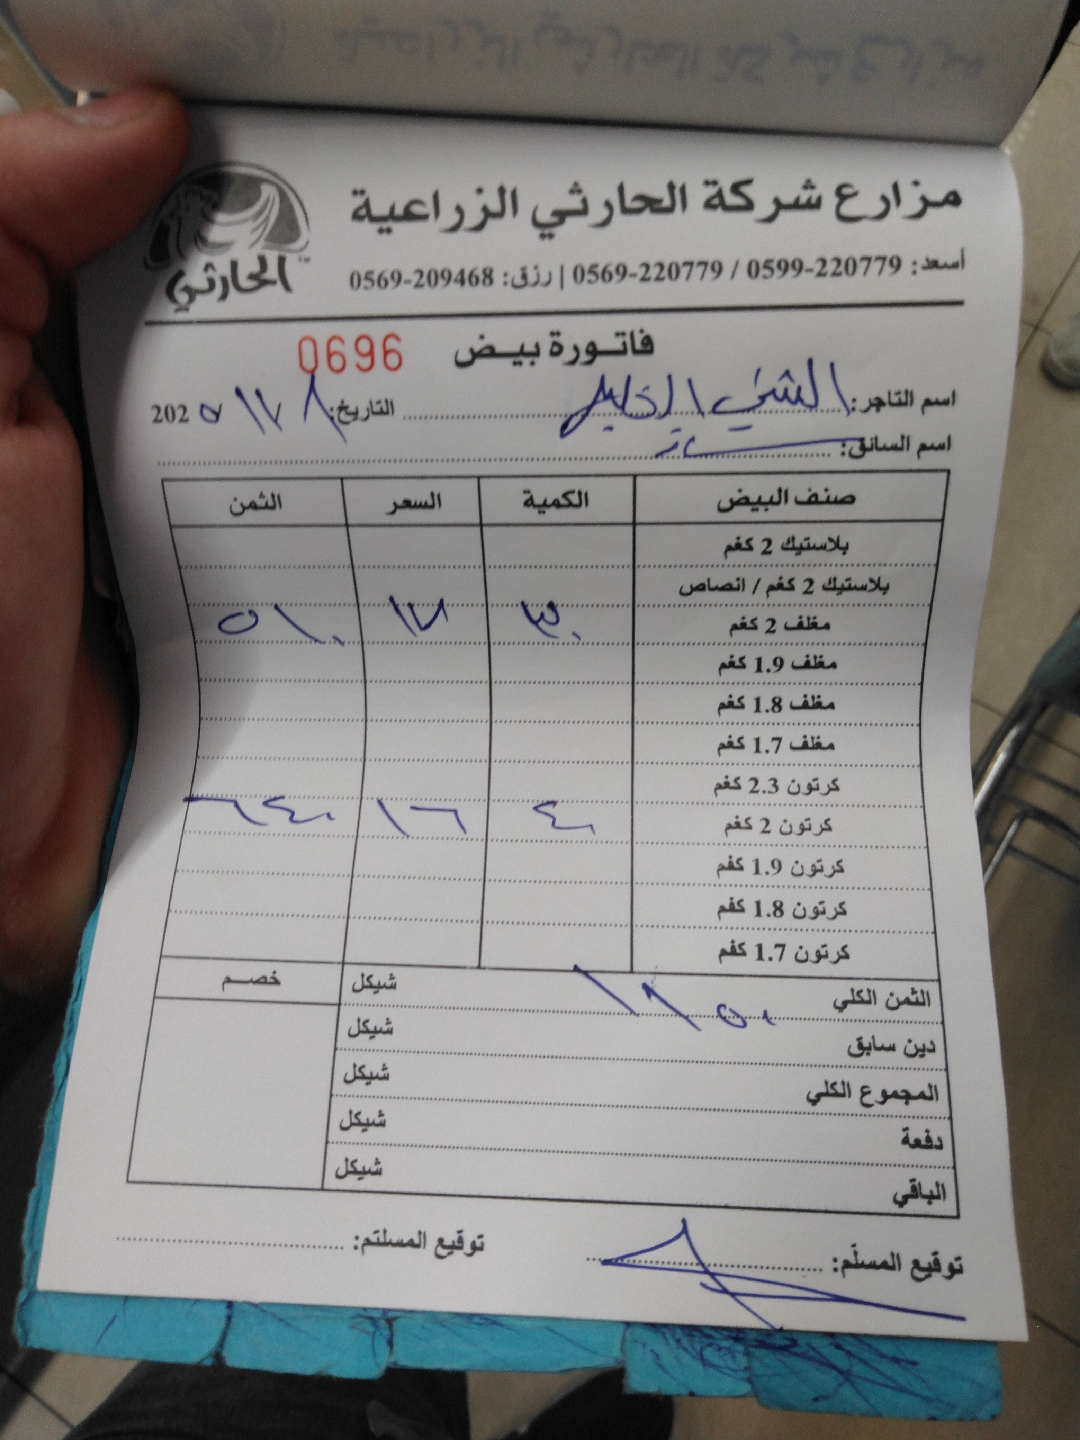 مزارع شركة الحارثي الزراعية
الحارثي™
أسعد: 0599-220779 / 0569-220779 | رزق: 0569-209468
فاتورة بيض 0696
اسم التاجر: التاريخ: ٨ \ ١٢ \ 202٥
اسم السائق:
صنف البيض الكمية السعر الثمن
بلاستيك 2 كغم
بلاستيك 2 كغم / انصاص
مغلف 2 كغم ٣٠ ١٧ ٥١٠
مغلف 1.9 كغم
مغلف 1.8 كغم
مغلف 1.7 كغم
كرتون 2.3 كغم
كرتون 2 كغم ٤٠ ١٦ ٦٤٠
كرتون 1.9 كغم
كرتون 1.8 كغم
كرتون 1.7 كغم
الثمن الكلي ١١٥٠ شيكل خصم
دين سابق شيكل
المجموع الكلي شيكل
دفعة شيكل
الباقي شيكل
توقيع المسلّم: توقيع المستلم: